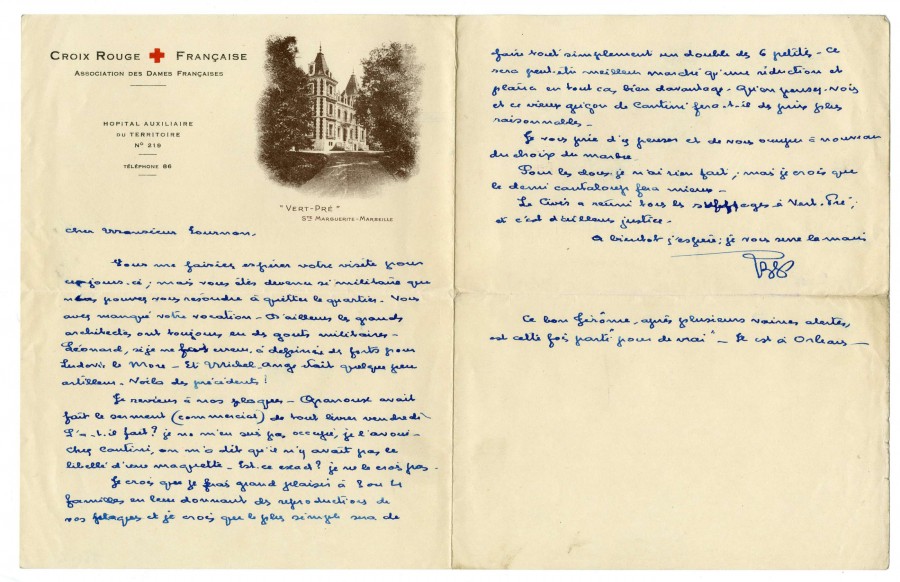 CROIX ROUGE FRANÇAISE
ASSOCIATION DES DAMES FRANÇAISES
HOPITAL AUXILIAIRE
DU TERRITOIRE
N° 219
TÉLÉPHONE 86
"VERT-PRÉ"
STE MARGUERITE-MARSEILLE
Cher Monsieur Tournon,
Vous me faisiez espérer votre visite pour
ces jours-ci ; mais vous êtes devenu si militaire que
vous pouvez vous résoudre à quitter le quartier - Vous
avez manqué votre vocation - D'ailleurs les grands
architectes ont toujours eu des goûts militaires -
Léonard, si je ne fais erreur, a dessiné des forts pour
Ludovic le More - Et Michel-Ange était quelque peu
artilleur - Voilà des précédents !
Je reviens à nos plaques - avait
fait le serment (commercial) de tout livrer vendredi
L'a-t-il fait ? je ne m'en suis pas occupé, je l'avoue -
Chez Cantini, on m'a dit qu'il n'y avait pas le
libellé d'une maquette - Est-ce exact ? je ne le crois pas -
Je crois que je ferais grand plaisir à 3 ou 4
familles en leur donnant des reproductions de
vos plaques et je crois que le plus simple sera de
faire tout simplement un double des 6 petites - Ce
sera peut-être meilleur marché qu'une réduction et
plaira en tout cas bien davantage - Qu'en pensez-vous
et ce vieux de Cantini fera-t-il des prix plus
raisonnables -
Je vous prie d'y penser et de vous occuper à nouveau
du choix du marbre
Pour les dous je n'ai rien fait ; mais je crois que
le demi cantaloup fera mieux -
Le Civis a réuni tous les suffrages à Vert-Pré ;
et c'est d'ailleurs justice -
A bientôt j'espère ; je vous serre la main
Ce bon Jérôme, après plusieurs vaines alertes,
est cette fois parti "pour de vrai" - Il est à Orléans -